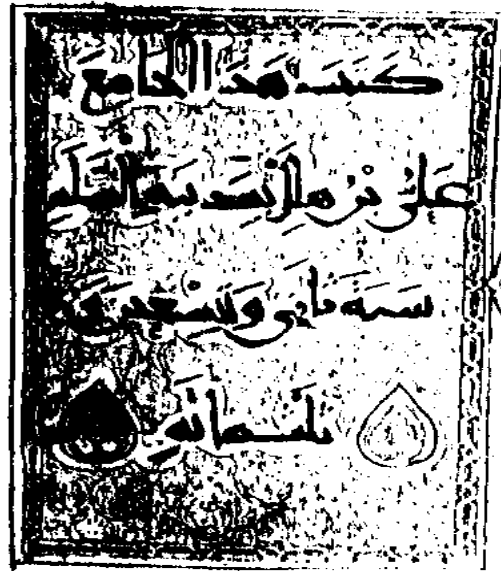 كتب هذا الجامع
علي بن هلال بمدينة السلم
سنة وتسعين و
ثلثمائة